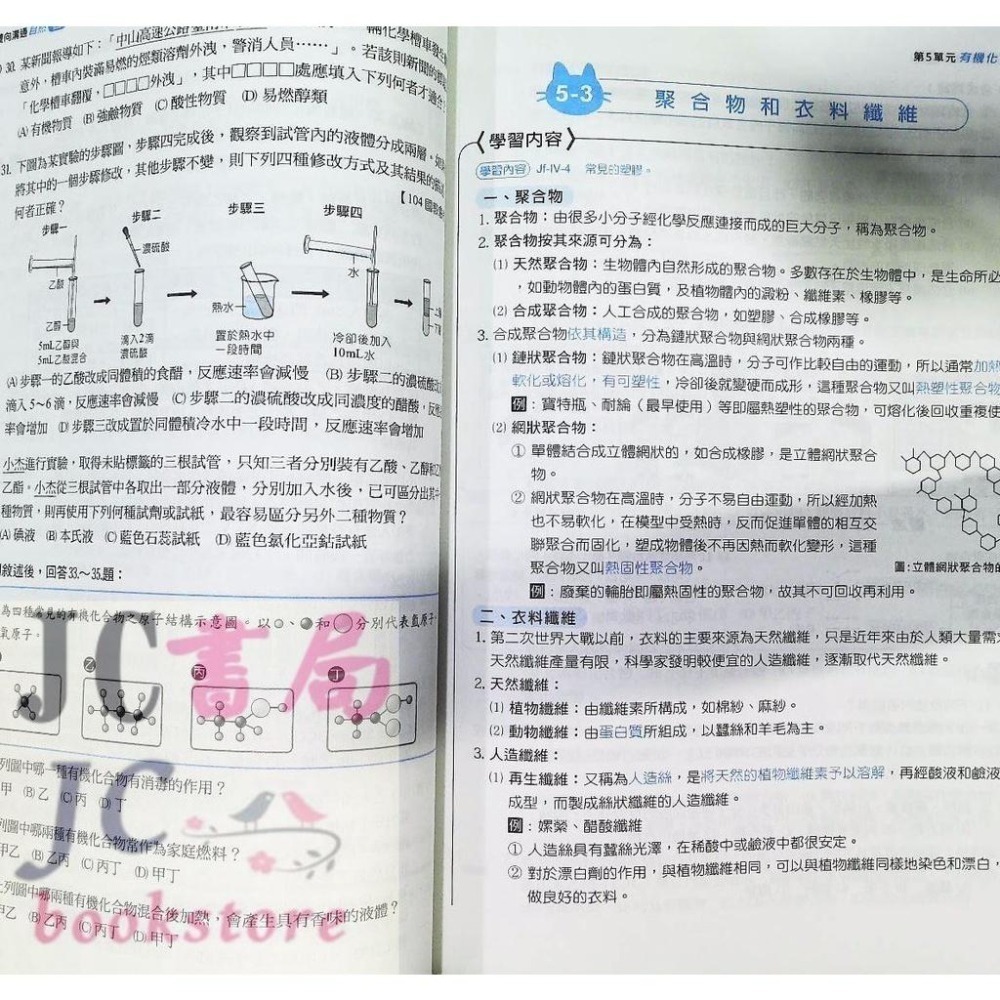 雙向溝通 自然
30. 某新聞報導如下：「中山高速公路
意外，槽車內裝滿易燃的烴類溶劑外洩，警消人員……」。若該則新聞的
「化學槽車翻覆，□□□□外洩」，其中□□□□處應填入下列何者才適合
(A) 有機物質 (B) 強鹼物質 (C) 酸性物質 (D) 易燃醇類
31. 下圖為某實驗的步驟圖，步驟四完成後，觀察到試管內的液體分成兩層。
將其中的一個步驟修改，其他步驟不變，則下列四種修改方式及其結果的
何者正確？
【104
步驟一
步驟二
步驟三
步驟四
濃硫酸
水
乙酸
熱水
乙醇
5mL乙醇與
5mL乙酸混合
滴入2滴
濃硫酸
置於熱水中
一段時間
冷卻後加入
10mL水
(A) 步驟一的乙酸改成同體積的食醋，反應速率會減慢 (B) 步驟二的濃硫酸
滴入5～6滴，反應速率會減慢 (C) 步驟二的濃硫酸改成同濃度的醋酸，反應
率會增加 (D) 步驟三改成置於同體積冷水中一段時間，反應速率會增加
小杰進行實驗，取得未貼標籤的三根試管，只知三者分別裝有乙酸、乙醇和
乙酯。小杰從三根試管中各取出一部分液體，分別加入水後，已可區分出其中
種物質，則再使用下列何種試劑或試紙，最容易區分另外二種物質？
(A) 碘液 (B) 本氏液 (C) 藍色石蕊試紙 (D) 藍色氯化亞鈷試紙
敘述後，回答33.～35.題：
為四種常見的有機化合物之原子結構示意圖。以○、●和○分別代表氫原子
氧原子。
乙
丙
丁
列圖中哪一種有機化合物有消毒的作用？
甲 (B) 乙 (C) 丙 (D) 丁
列圖中哪兩種有機化合物常作為家庭燃料？
甲乙 (B) 乙丙 (C) 丙丁 (D) 甲丁
列圖中哪兩種有機化合物混合後加熱，會產生具有香味的液體？
甲乙 (B) 乙丙 (C) 丙丁 (D) 甲丁
JC書局
JC
bookstore
第5單元 有機化
5-3 聚合物和衣料纖維
〈學習內容〉
學習內容 Jf-IV-4 常見的塑膠。
一、聚合物
1. 聚合物：由很多小分子經化學反應連接而成的巨大分子，稱為聚合物。
2. 聚合物按其來源可分為：
(1) 天然聚合物：生物體內自然形成的聚合物。多數存在於生物體中，是生命所必
，如動物體內的蛋白質，及植物體內的澱粉、纖維素、橡膠等。
(2) 合成聚合物：人工合成的聚合物，如塑膠、合成橡膠等。
3. 合成聚合物依其構造，分為鏈狀聚合物與網狀聚合物兩種。
(1) 鏈狀聚合物：鏈狀聚合物在高溫時，分子可作比較自由的運動，所以通常加熱
軟化或熔化，有可塑性，冷卻後就變硬而成形，這種聚合物又叫熱塑性聚合物
例：寶特瓶、耐綸（最早使用）等即屬熱塑性的聚合物，可熔化後回收重複使
(2) 網狀聚合物：
① 單體結合成立體網狀的，如合成橡膠，是立體網狀聚合
物。
② 網狀聚合物在高溫時，分子不易自由運動，所以經加熱
也不易軟化，在模型中受熱時，反而促進單體的相互交
聯聚合而固化，塑成物體後不再因熱而軟化變形，這種
聚合物又叫熱固性聚合物。
圖：立體網狀聚合物的
例：廢棄的輪胎即屬熱固性的聚合物，故其不可回收再利用。
二、衣料纖維
1. 第二次世界大戰以前，衣料的主要來源為天然纖維，只是近年來由於人類大量需
天然纖維產量有限，科學家發明較便宜的人造纖維，逐漸取代天然纖維。
2. 天然纖維：
(1) 植物纖維：由纖維素所構成，如棉紗、麻紗。
(2) 動物纖維：由蛋白質所組成，以蠶絲和羊毛為主。
3. 人造纖維：
(1) 再生纖維：又稱為人造絲，是將天然的植物纖維素予以溶解，再經酸液和鹼液
成型，而製成絲狀纖維的人造纖維。
例：嫘縈、醋酸纖維
① 人造絲具有蠶絲光澤，在稀酸中或鹼液中都很安定。
② 對於漂白劑的作用，與植物纖維相同，可以與植物纖維同樣地染色和漂白，
做良好的衣料。